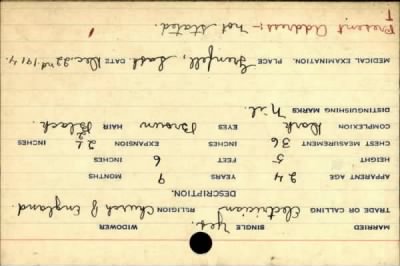 MARRIED SINGLE Yes. WIDOWER
TRADE OR CALLING Electrician RELIGION Church of England.
DESCRIPTION.
APPARENT AGE 24 YEARS 9 MONTHS
HEIGHT 5 FEET 6 INCHES
CHEST MEASUREMENT 36 INCHES EXPANSION 2½ INCHES
COMPLEXION Dark EYES Brown HAIR Black.
DISTINGUISHING MARKS Nil.
MEDICAL EXAMINATION. PLACE Grenfell, Sask. DATE Dec. 22nd. 1914.
Present Address:- not stated.
T